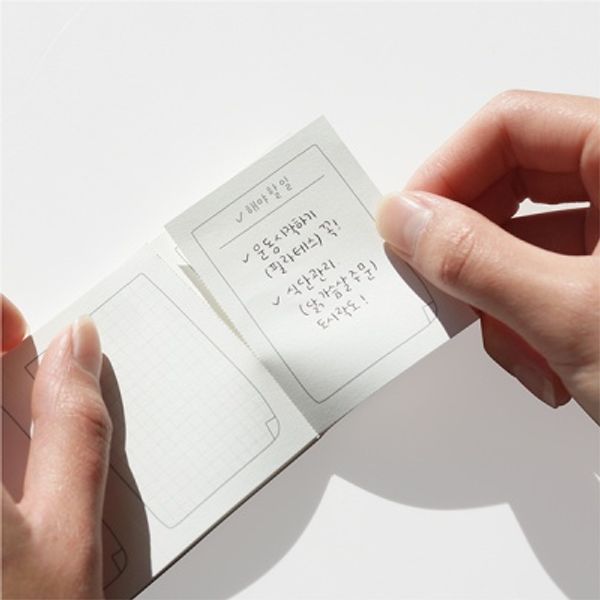 ✓ 해야할일
✓ 운동시작하기
(필라테스) 꼭!
✓ 식단관리
(닭가슴살주문)
도시락도!